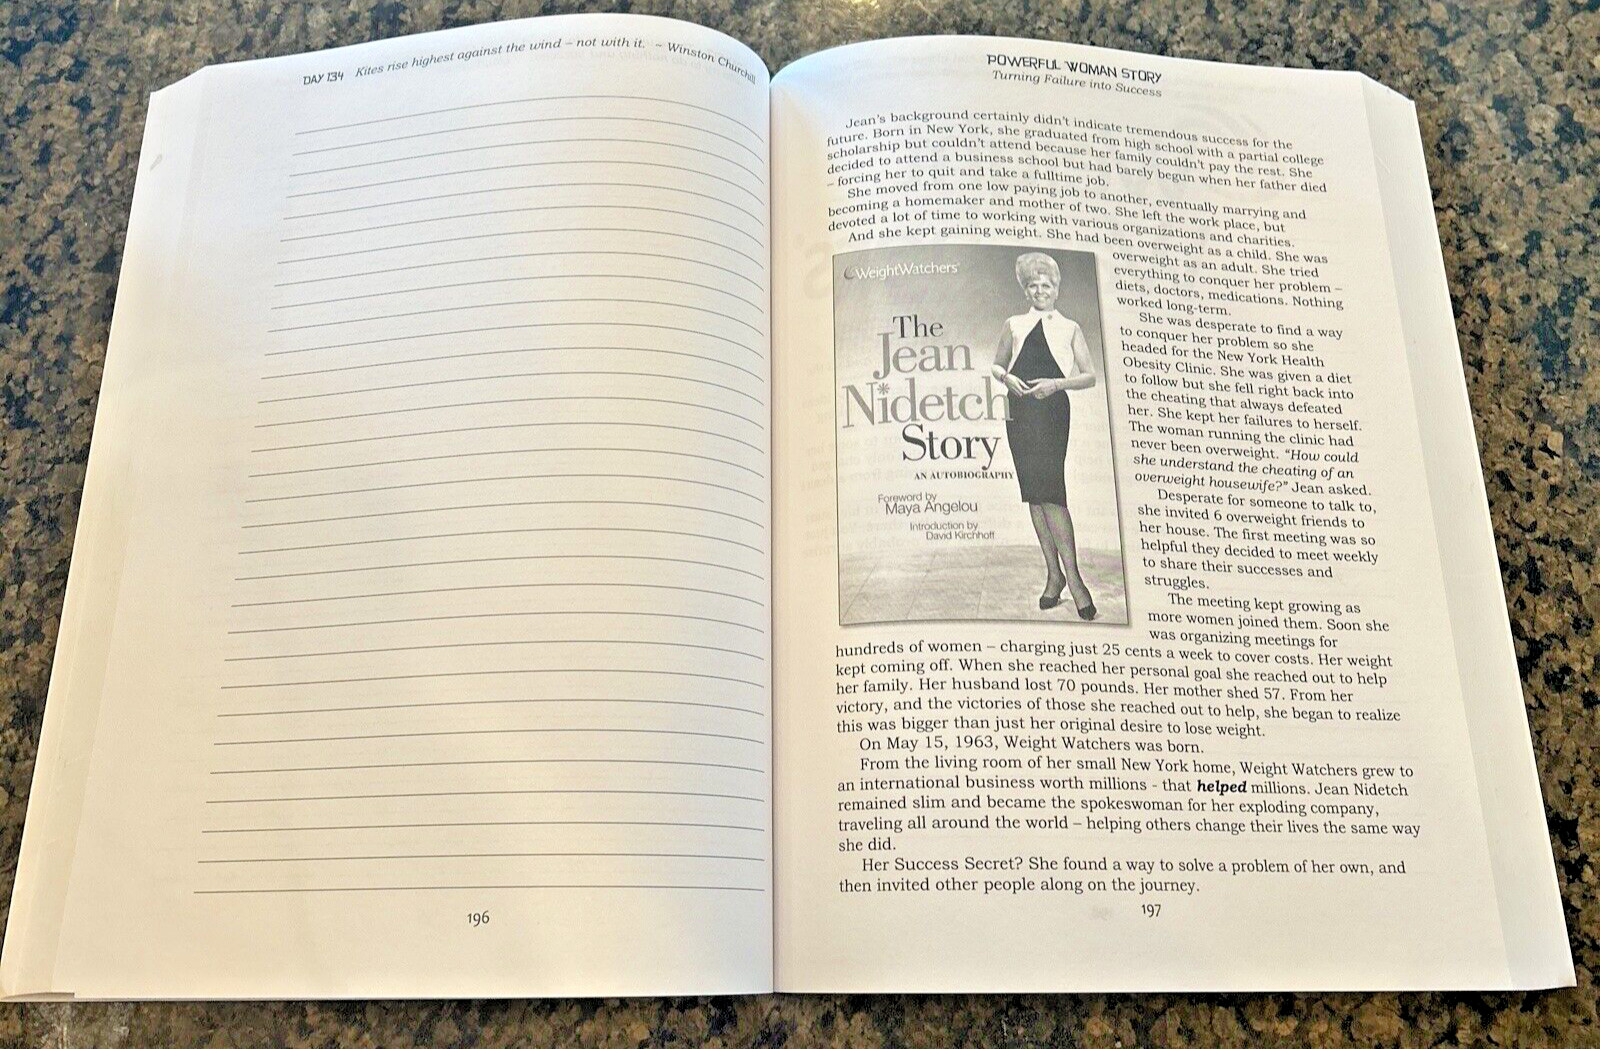 DAY 134 Kites rise highest against the wind – not with it. ~ Winston Churchill
196
POWERFUL WOMAN STORY
Turning Failure into Success
Jean's background certainly didn't indicate tremendous success for the
future. Born in New York, she graduated from high school with a partial college
scholarship but couldn't attend because her family couldn't pay the rest. She
decided to attend a business school but had barely begun when her father died
– forcing her to quit and take a fulltime job.
She moved from one low paying job to another, eventually marrying and
becoming a homemaker and mother of two. She left the work place, but
devoted a lot of time to working with various organizations and charities.
And she kept gaining weight. She had been overweight as a child. She was
overweight as an adult. She tried
everything to conquer her problem –
diets, doctors, medications. Nothing
worked long-term.
She was desperate to find a way
to conquer her problem so she
headed for the New York Health
Obesity Clinic. She was given a diet
to follow but she fell right back into
the cheating that always defeated
her. She kept her failures to herself.
The woman running the clinic had
never been overweight. "How could
she understand the cheating of an
overweight housewife?" Jean asked.
Desperate for someone to talk to,
she invited 6 overweight friends to
her house. The first meeting was so
helpful they decided to meet weekly
to share their successes and
struggles.
The meeting kept growing as
more women joined them. Soon she
was organizing meetings for
WeightWatchers
The
Jean
Nidetch
Story
AN AUTOBIOGRAPHY
Foreword by
Maya Angelou
Introduction by
David Kirchhoff
hundreds of women – charging just 25 cents a week to cover costs. Her weight
kept coming off. When she reached her personal goal she reached out to help
her family. Her husband lost 70 pounds. Her mother shed 57. From her
victory, and the victories of those she reached out to help, she began to realize
this was bigger than just her original desire to lose weight.
On May 15, 1963, Weight Watchers was born.
From the living room of her small New York home, Weight Watchers grew to
an international business worth millions - that helped millions. Jean Nidetch
remained slim and became the spokeswoman for her exploding company,
traveling all around the world – helping others change their lives the same way
she did.
Her Success Secret? She found a way to solve a problem of her own, and
then invited other people along on the journey.
197